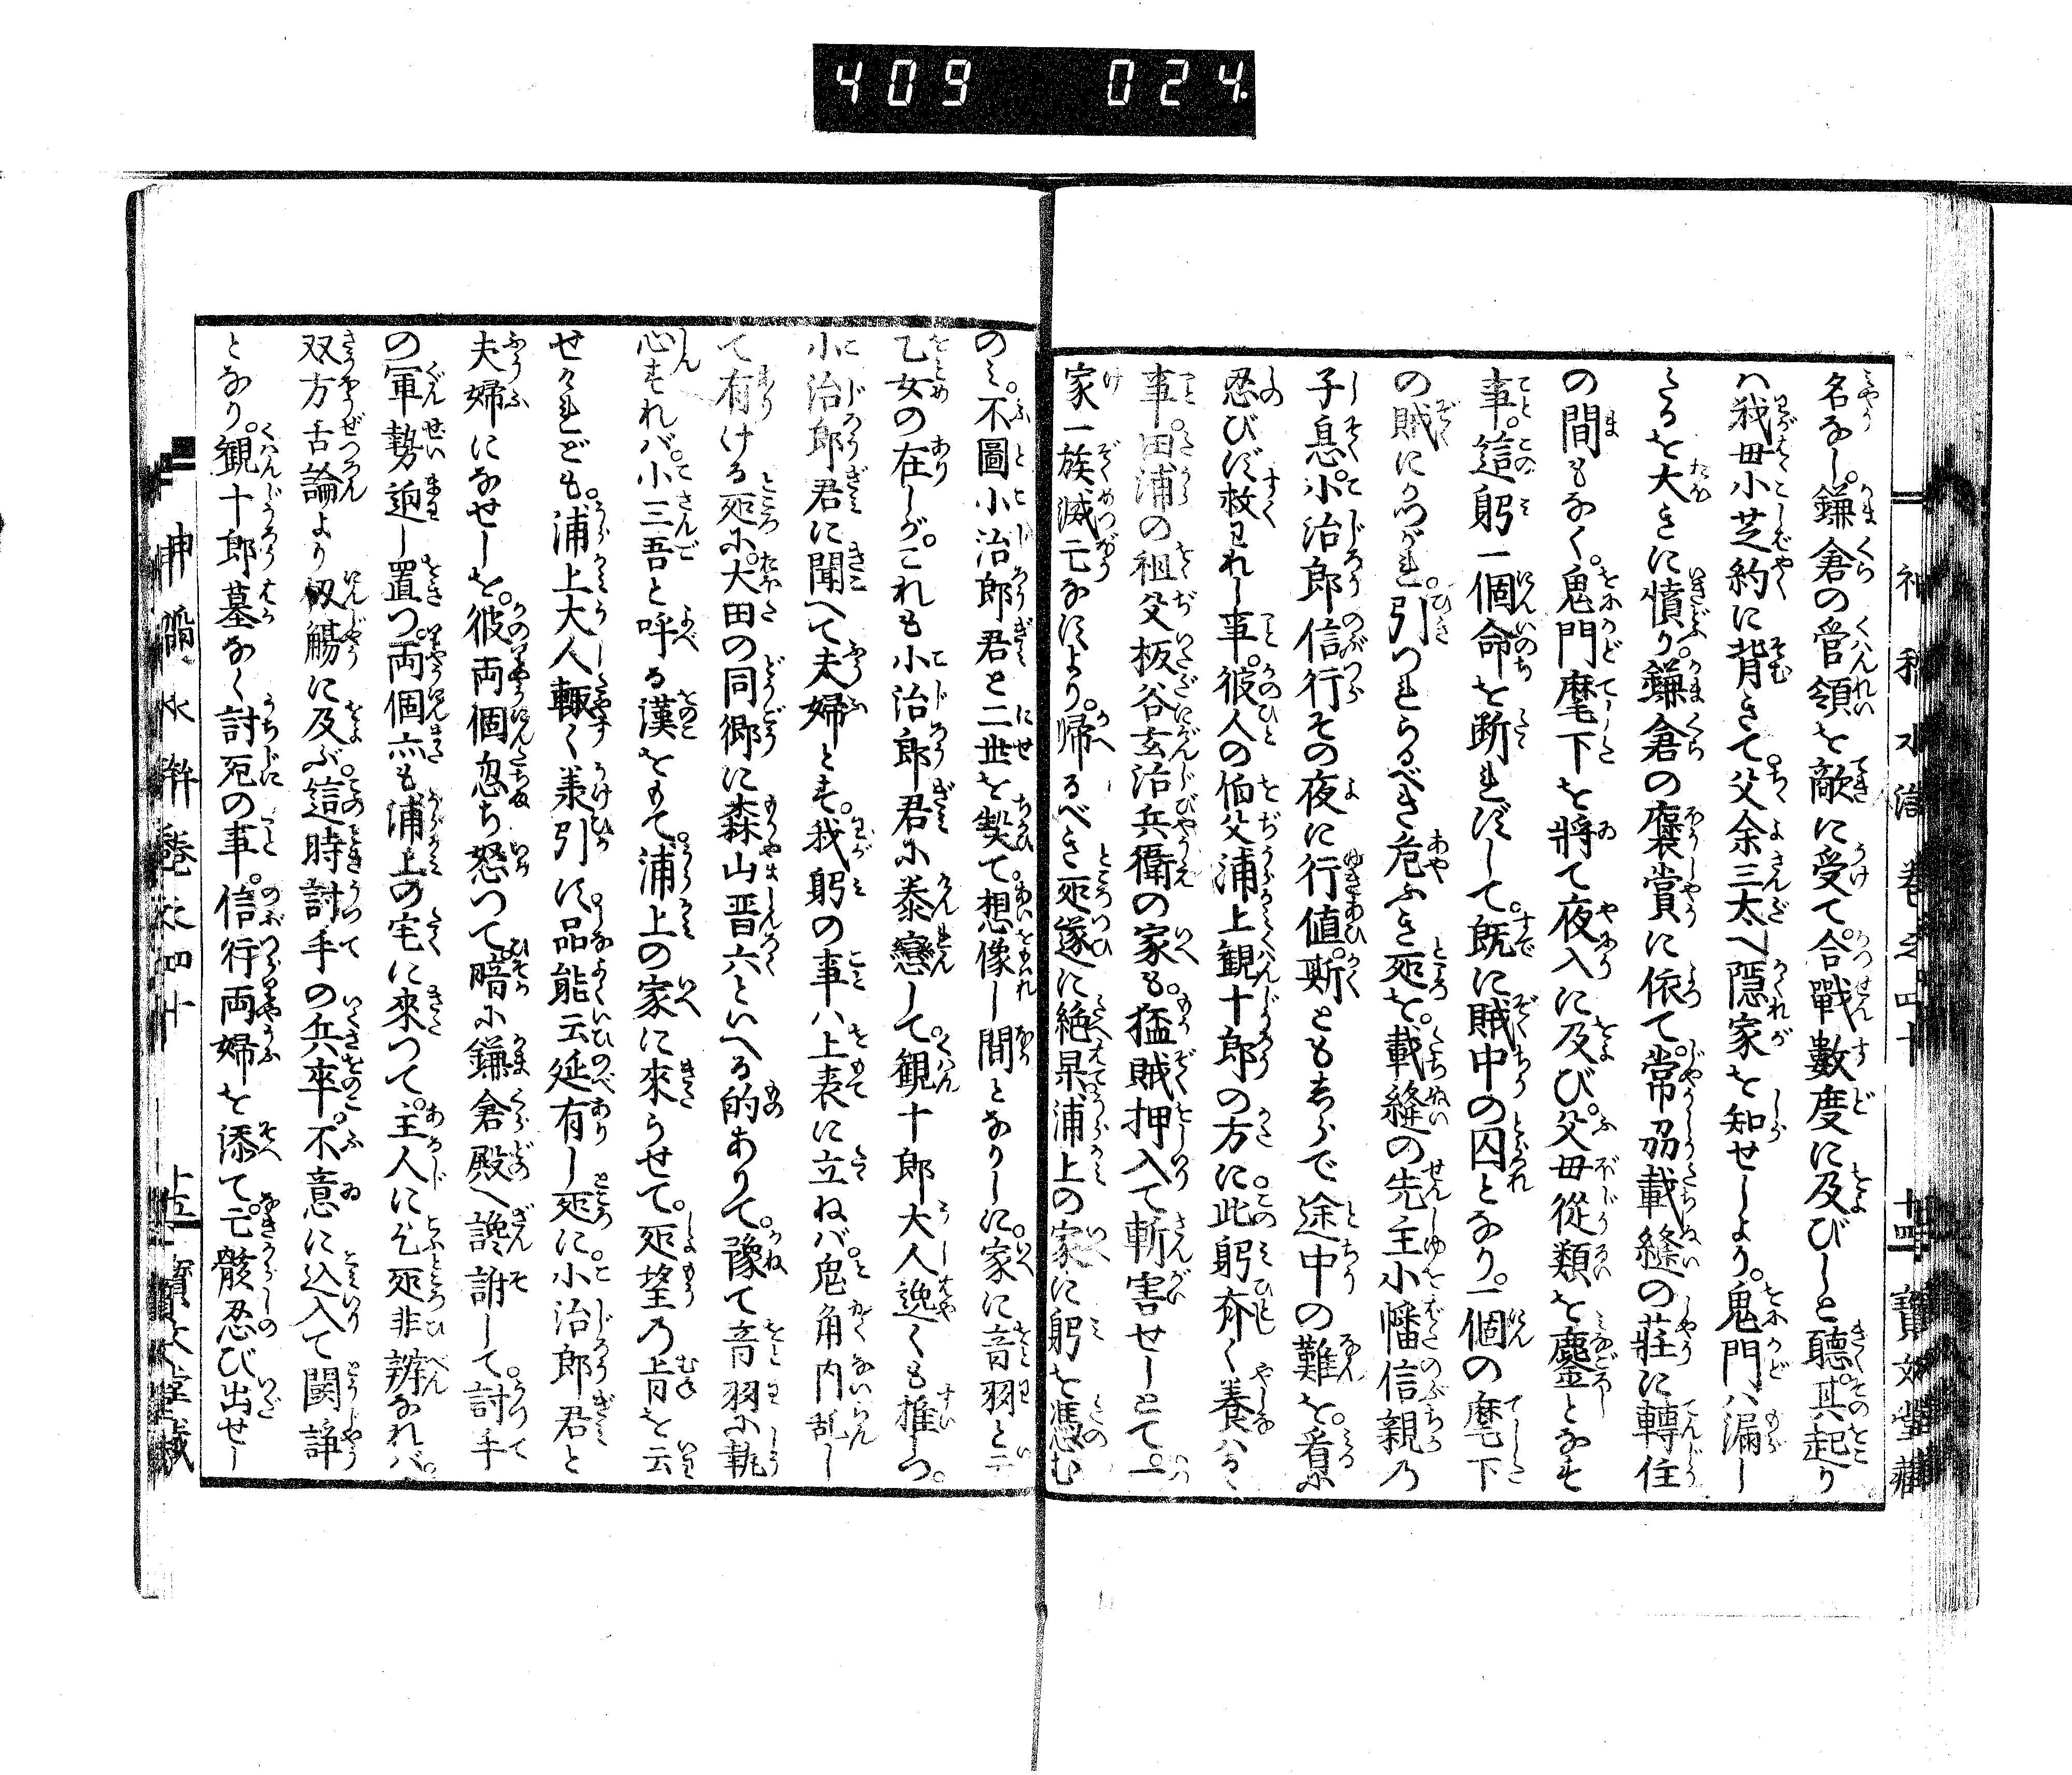 409 024
名なし。鎌倉の官領を敵に受て。合戰數度に及びしと聽。其起り
ハ我毋小芝約に背きて父余三太へ隠家を知せしより。鬼門ハ漏し
たるを大きに憤り。鎌倉の褒賞に依て。常刕載縫の莊に轉住
の間もなく。鬼門麾下を將て夜入に及び。父毋從類を鏖となす
事。這躬一個命を断れずして。既に賊中の囚となり。一個の麾下
の賊にかつがれ。引つれらるべき危ふき処を。載縫の先主小幡信親乃
子息。小治郎信行その夜に行値。斯ともあらで途中の難を。看に
忍びず救われし事。彼人の伯父浦上観十郎の方に此躬斉く養ハるゝ
事。田浦の祖父板谷玄治兵衛の家も。猛賊押入て斬害せしとて。一
家一族滅亡なすより。帰るべき処遂に絶果浦上の家に躬を憑む
のミ。不圖小治郎君と二世を契て。想像し間となりしに。家に音羽と云
乙女の在しが。これも小治郎君に恭戀して。観十郎大人逸くも推しつ。
小治郎君に聞へて夫婦とす。我躬の事ハ上表に立ねバ。兎角内乱し
て有ける処に。大田の同郷に森山晋六といへる的ありて。豫て音羽に執
心すれバ。小三吾と呼る漢をもて。浦上の家に來らせて。処望乃㫖を云
せけれども。浦上大人輙く羕引ず。品能云延有し処に。小治郎君と
夫婦になせしを。彼両個忽ち怒つて。暗に鎌倉殿へ讒訴して。討手
の軍勢廹し置つ。両個亦も浦上の宅に來つて。主人に乞処非辨なれバ。
双方舌論より刄觴に及ぶ。這時討手の兵卒。不意に込入て闘諍
となり。観十郎墓なく討死の事。信行両婦を添て。亡骸忍び出せし
神稻水滸 巻之四十 十四 寶文堂藏
神稻水滸 巻之四十 十五 寶文堂藏